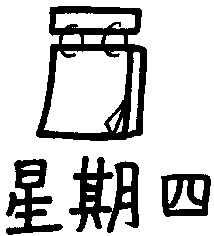 星期四